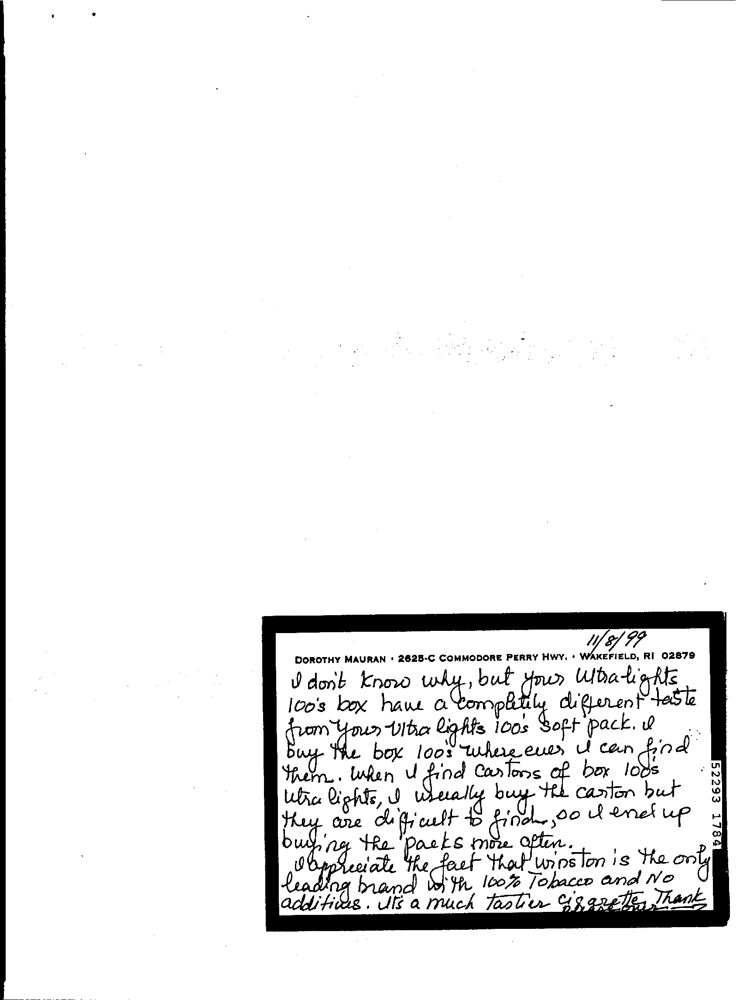 11/8/99
DOROTHY MAURAN · 2625-C COMMODORE PERRY HWY. · WAKEFIELD, RI 02879
I don't know why, but your Ultra lights
100's box have a completily different taste
from your Ultra lights 100's soft pack. I
buy the box 100's where ever I can find
them. When I find cartons of box 100's
Ultra lights, I usually buy the carton but
they are difficult to find, so I end up
buying the packs more often.
I appreciate the fact that Winston is the only
leading brand with 100% Tobacco and No
additives. It's a much tastier cigarette, Thank
52293 1784